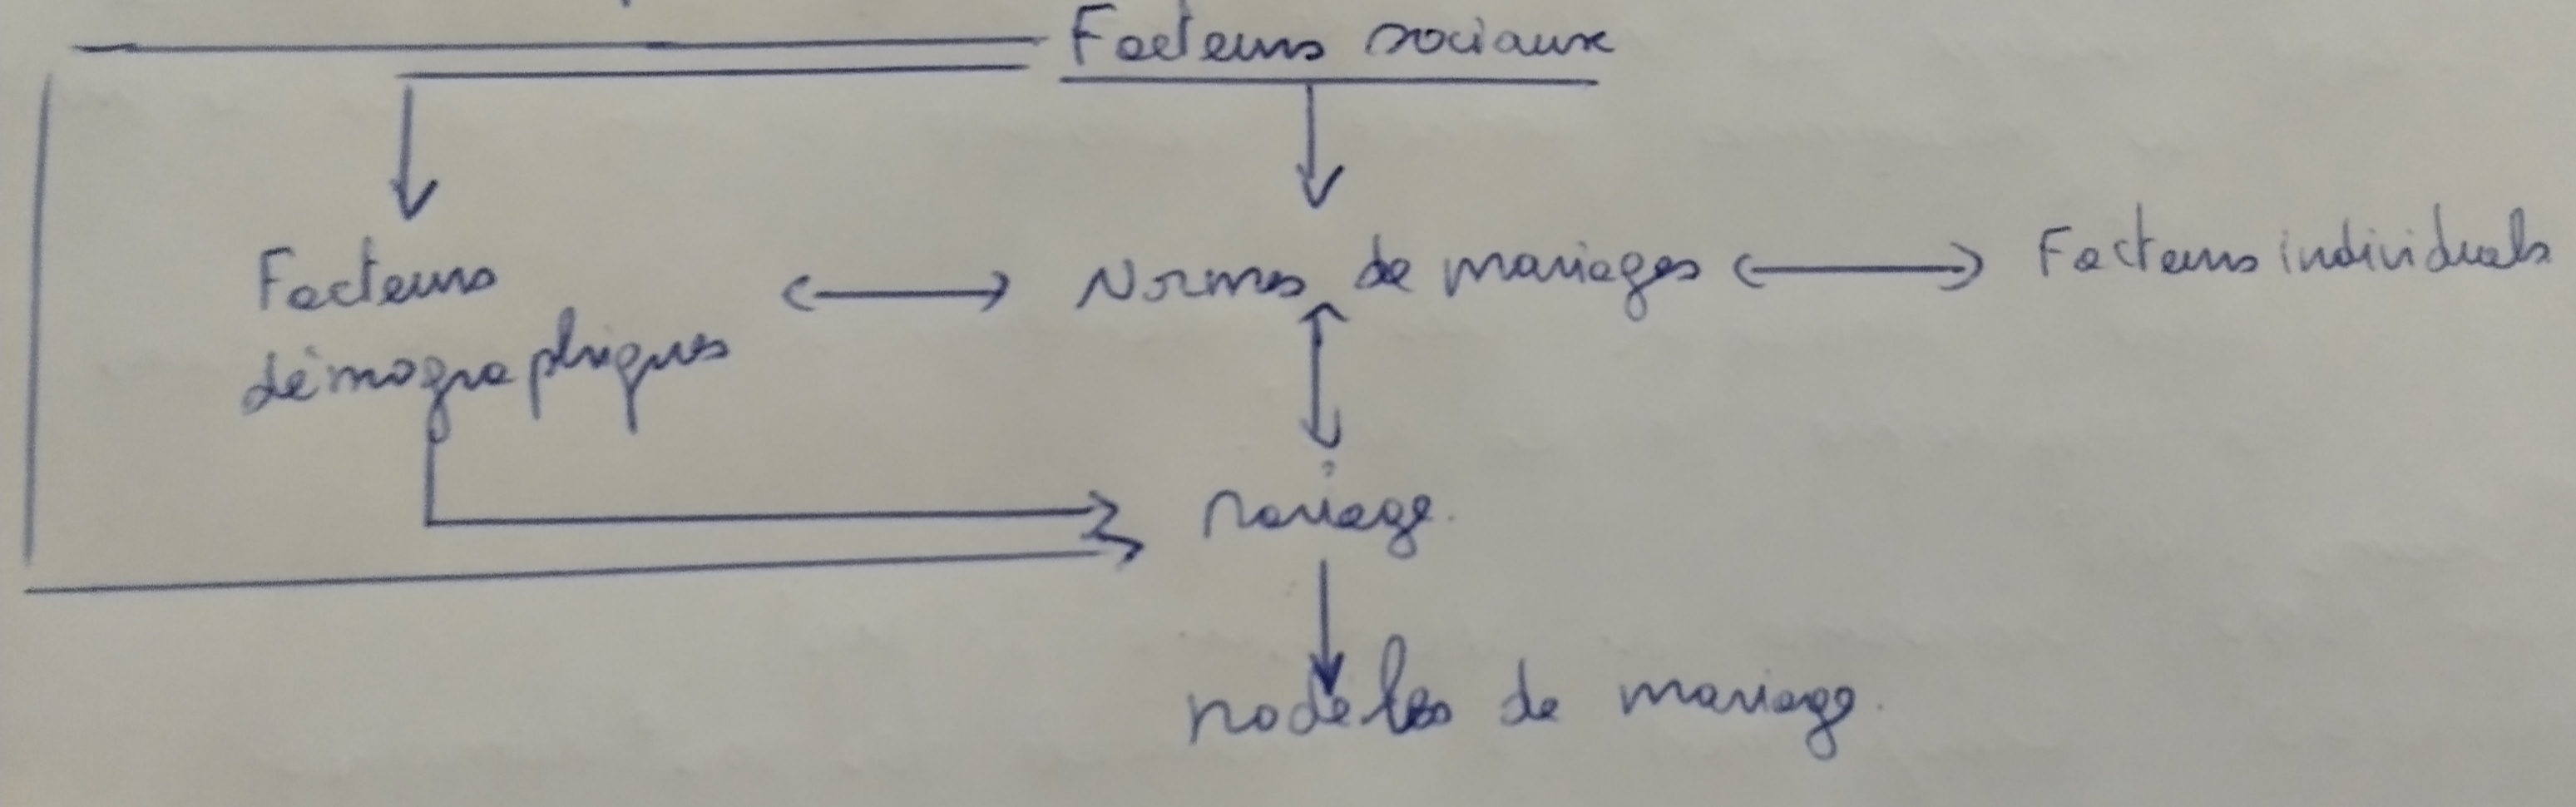 Facteurs sociaux
Facteurs
démographiques
Normes de mariages
Facteurs individuels
Mariage.
Modèles de mariage.